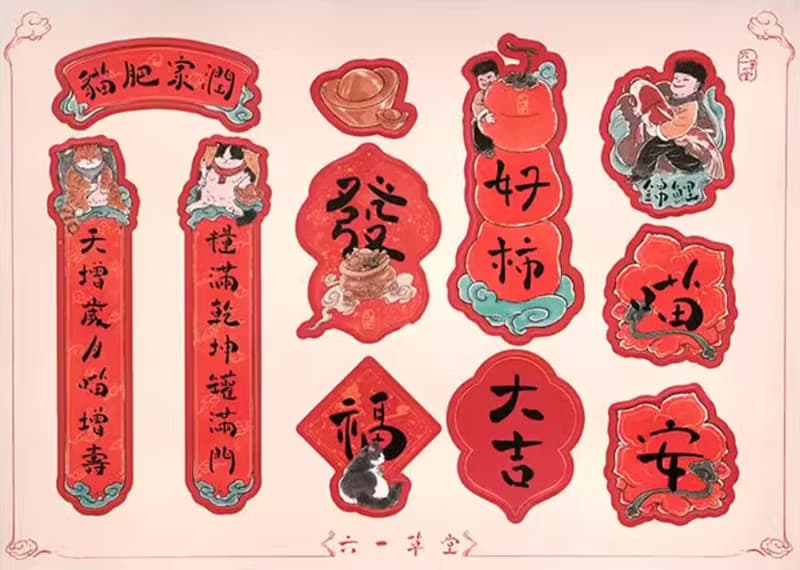 貓肥家潤
天增歲月喵增壽
糧滿乾坤罐滿門
發
福
好柿
大吉
錦鯉
喵
安
六一草堂
六一草堂